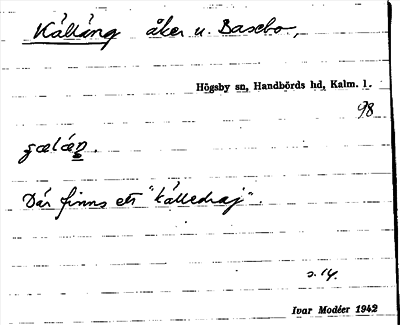 Källäng åker u. Basebo,
Högsby sn, Handbörds hd, Kalm. l.
98
Där finns ett "källedraj".
s. 14.
Ivar Modéer 1942